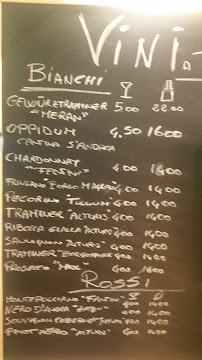 VINI A
BIANCHI
GEWÜRZTRAMINER 5.00 22.00
"MERAN"
OPPIDUM 4.50 1600
CANTINA S'ANDREA
CHARDONNAY 4.00 1400
"FANTINI"
FRIULANO 4.00 1400
PECORINO 400 1400
TRAMINER "ALTURIS" 400 1400
RIBOLLA GIALLA "ALTURIS" 400 1400
SAUVIGNON "ALTURIS" 400 1400
TRAMINER 400 1400
PROSECCO 400 1600
ROSSI
MONTEPULCIANO "FANTINI" 400 1400
NERO D'AVOLA 400 1400
SAUVIGNON CABERNET 400 1400
PINOT NERO "ALTURIS" 400 1400